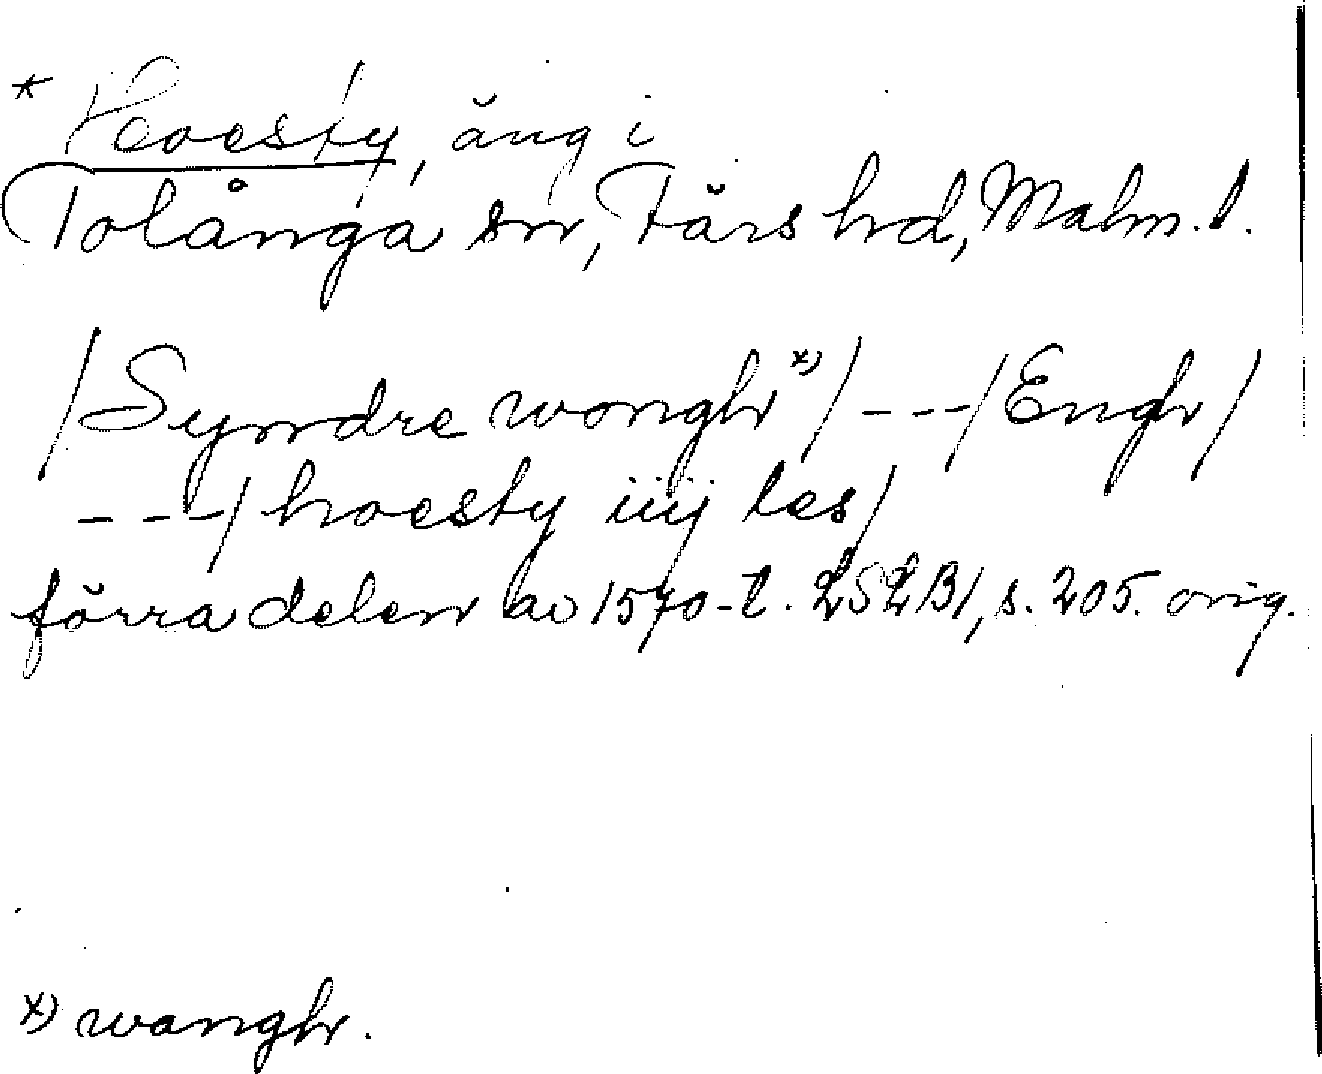 * Hoesty, äng i
Tolånga sn, Färs hd, Malm. l.
/Syndre wongh x)/ --- /Engh/
--- /hoesty iiij les/
förra delen av 1570-t. LSLB1, s. 205. orig.
x) wangh.